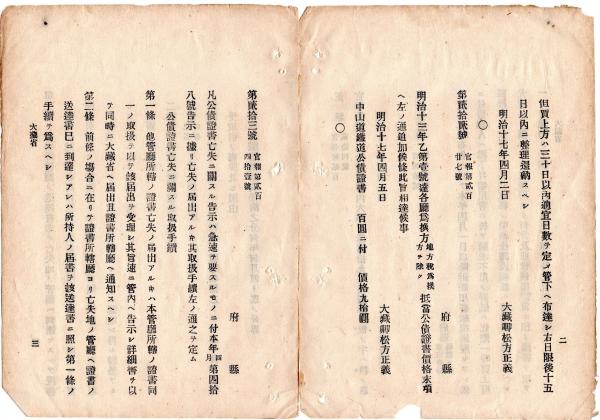 但買上方ハ三十日以內適宜日數ヲ定メ管下ヘ布達シ右日限後十五
日以內ニ整理還納スヘシ
明治十七年四月二日
大藏卿松方正義
○
第貳拾貳號
官報第貳百
廿七號
府縣
明治十三年乙第壹號達各廳爲換方
地方稅爲換
方ヲ除ク
抵當公債證書價格末項
ヘ左ノ通追加候條此旨相達候事
明治十七年四月五日
大藏卿松方正義
中山道鐵道公債證書
百圓ニ付
價格九拾圓
○
二
第貳拾三號
官報第貳百
四拾壹號
府縣
凡公債證書亡失ニ關スル告示ハ急速ヲ要スルモノニ付本年
四
月
第四拾
八號告示ニ據リ亡失ノ屆出アルキハ其取扱手續左ノ通之ヲ定ム
公債證書亡失ニ關スル取扱手續
第一條
他管廳所轄ノ證書亡失ノ屆出アルキハ本管廳所轄ノ證書同
一ノ取扱ヲ以テ該屆出ヲ受理シ其旨速ニ管內ヘ告示シ詳細書ヲ以
テ同時ニ大藏省ヘ屆出且證書所轄廳ヘ通知スヘシ
第二條
前條ノ場合ニ在リテ證書所轄廳ヨリ亡失地ノ管廳ヘ證書ノ
送達書已ニ到達シアレハ所持人ノ屆書ヲ該送達書ニ照シ第一條ノ
手續ヲ爲スヘシ
大藏省
三